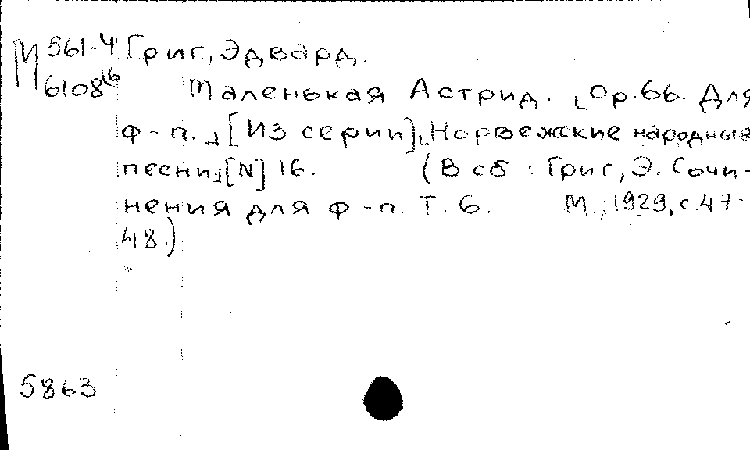 М 561-4 Григ, Эдвард.
6108 16 Маленькая Астрид. Ор. 66. Для
ф-п. [Из серии] Норвежские народные
песни [N] 16. (В сб: Григ, Э. Сочи-
нения для ф-п. Т. 6. М., 1929, с. 47-
48.)
5863